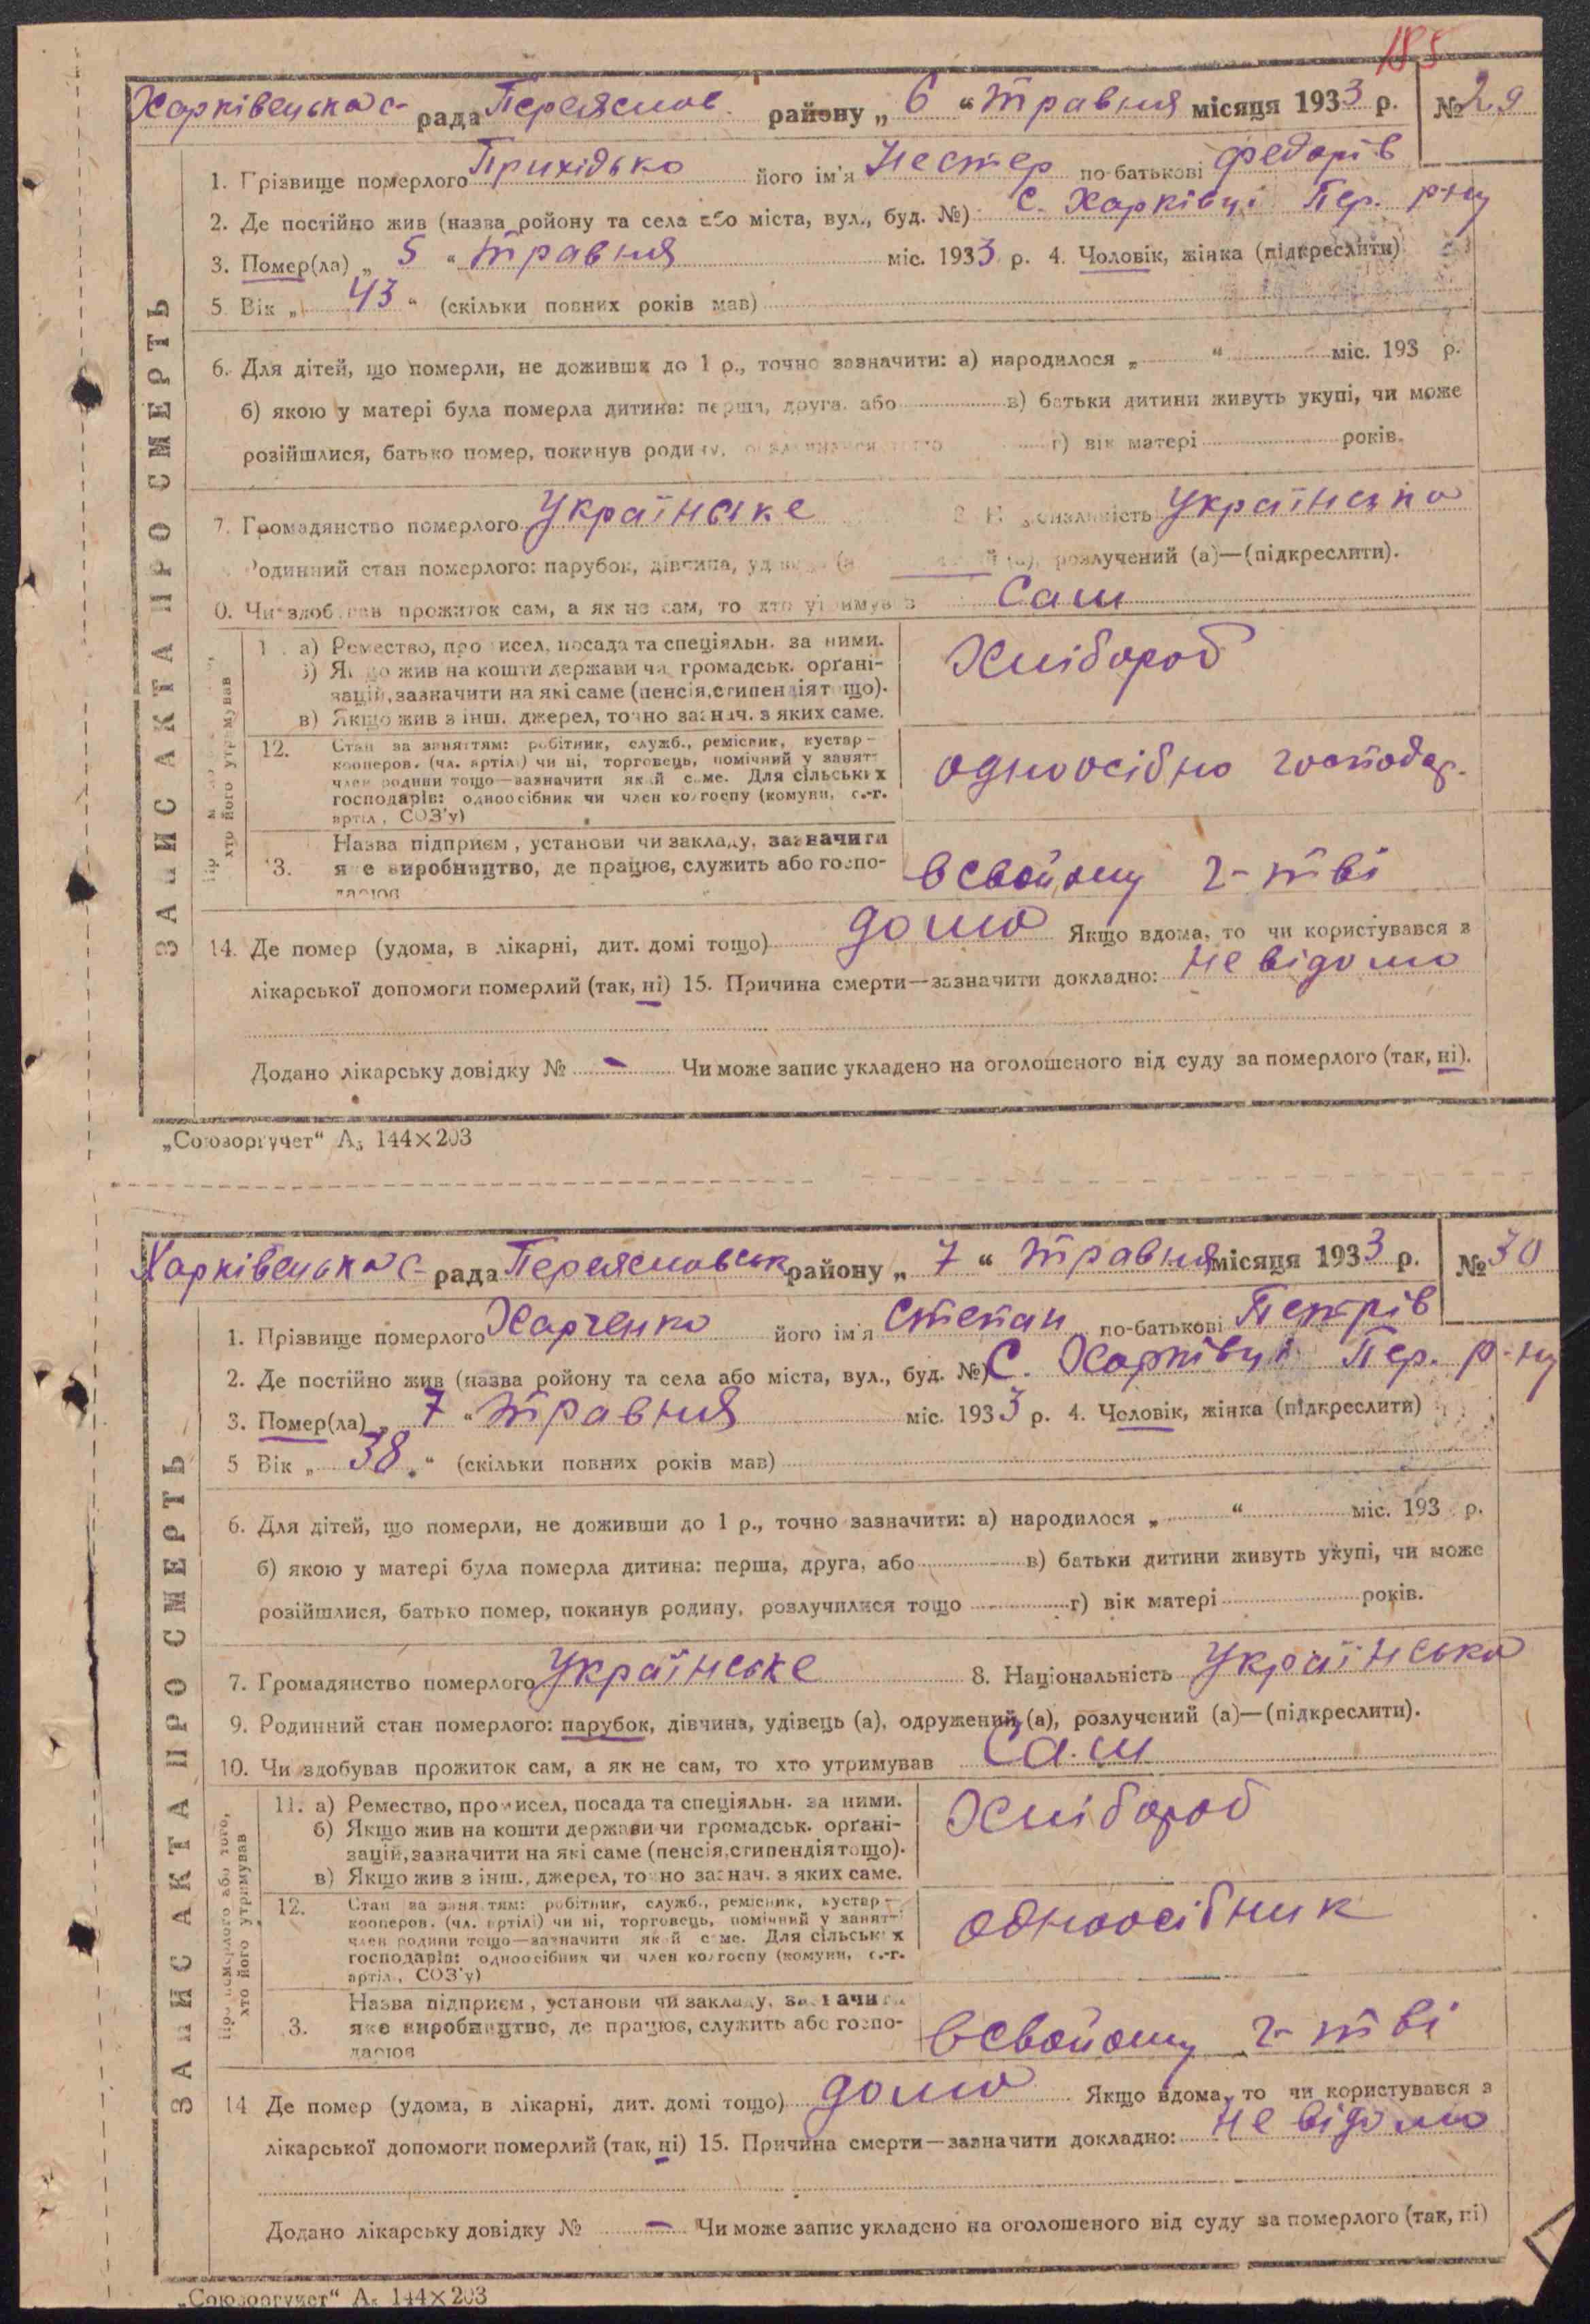 185
Харківецька с- рада Переяслов. району „ 6 “ травня місяця 1933 р. № 29
1. Прізвище померлого Прихідько його ім'я Нестер по-батькові Федорів
2. Де постійно жив (назва ройону та села або міста, вул., буд. №) с. Харківці Пер. р-ну
3. Помер(ла) „ 5 “ травня міс. 1933 р. 4. Чоловік, жінка (підкреслити)
5. Вік „ 43 “ (скільки повних років мав)
6. Для дітей, що померли, не доживши до 1 р., точно зазначити: а) народилося „ “ міс. 193 р.
б) якою у матері була померла дитина: перша, друга, або в) батьки дитини живуть укупі, чи може
розійшлися, батько помер, покинув родину, г) вік матері років.
7. Громадянство померлого Українське 8. Національність Українська
Родинний стан померлого: парубок, дівчина, розлучений (а)—(підкреслити).
0. Чи здобував прожиток сам, а як не сам, то хто утримував Сам
а) Ремество, промисел, посада та спеціяльн. за ними.
б) Якщо жив на кошти держави чи громадськ. орґані-
зацій, зазначити на які саме (пенсія, стипендія тощо).
в) Якщо жив з інш. джерел, точно зазнач. з яких саме.
Хлібороб
12. Стан за заняттям: робітник, служб., ремісник, кустар-
кооперов. (чл. артілі) чи ні, торговець, помічний у занят-
член родини тощо—зазначити який саме. Для сільських
господарів: одноосібник чи член колгоспу (комуни, с.-г.
артіл., СОЗ'у)
одноосібно господар.
3. Назва підприєм, установи чи закладу, зазначити
яке виробництво, де працює, служить або госпо-
дарює
в свойому г-тві
14. Де помер (удома, в лікарні, дит. домі тощо) дома Якщо вдома, то чи користувався з
лікарської допомоги померлий (так, ні) 15. Причина смерти—зазначити докладно: не відомо
Додано лікарську довідку № - Чи може запис укладено на оголошеного від суду за померлого (так, ні).
ЗАПИС АКТА ПРО СМЕРТЬ
„Союзоргучет“ А5 144×203
Харківецька с- рада Переясловськ району „ 7 “ травня місяця 1933 р. № 30
1. Прізвище померлого Харченко його ім'я Степан по-батькові Петрів
2. Де постійно жив (назва ройону та села або міста, вул., буд. №) С. Харківці Пер. р-ну
3. Помер(ла) „ 7 “ травня міс. 1933 р. 4. Чоловік, жінка (підкреслити)
5 Вік „ 38. “ (скільки повних років мав)
6. Для дітей, що померли, не доживши до 1 р., точно зазначити: а) народилося „ “ міс. 193 р.
б) якою у матері була померла дитина: перша, друга, або в) батьки дитини живуть укупі, чи може
розійшлися, батько помер, покинув родину, розлучилися тощо г) вік матері років.
7. Громадянство померлого Українське 8. Національність Українська
9. Родинний стан померлого: парубок, дівчина, удівець (а), одружений (а), розлучений (а)—(підкреслити).
10. Чи здобував прожиток сам, а як не сам, то хто утримував Сам
11. а) Ремество, промисел, посада та спеціяльн. за ними.
б) Якщо жив на кошти держави чи громадськ. орґані-
зацій, зазначити на які саме (пенсія, стипендія тощо).
в) Якщо жив з інш., джерел, точно зазнач. з яких саме.
Хлібороб
12. Стан за заняттям: робітник, служб., ремісник, кустар-
кооперов. (чл. артілі) чи ні, торговець, помічний у занят-
член родини тощо—зазначити який саме. Для сільських
господарів: одноосібник чи член колгоспу (комуни, с.-г.
артіл., СОЗ'у)
одноосібник
3. Назва підприєм, установи чи закладу, зазначити
яке виробництво, де працює, служить або госпо-
дарює
в свойому г-тві
Про померлого або того, хто його утримував
14 Де помер (удома, в лікарні, дит. домі тощо) дома Якщо вдома, то чи користувався з
лікарської допомоги померлий (так, ні) 15. Причина смерти—зазначити докладно: не відомо
Додано лікарську довідку № - Чи може запис укладено на оголошеного від суду за померлого (так, ні)
ЗАПИС АКТА ПРО СМЕРТЬ
„Союзоргучет“ А5 144×203